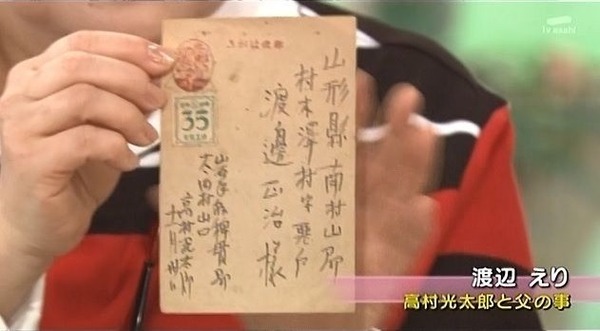 tv asahi
郵便はがき
35
山形縣南村山郡
村木澤村字悪戸
渡邊正治様
岩手縣稗貫郡
太田村山口
高村光太郎
渡辺 えり
高村光太郎と父の事